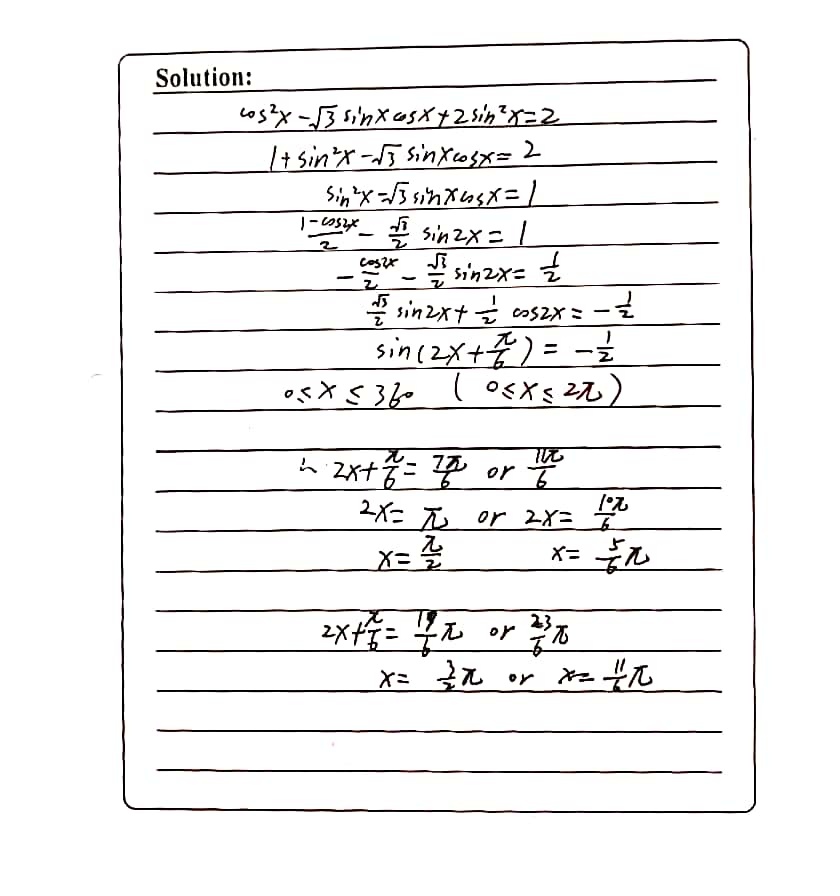 Solution:
cos²x - √3 sinx cosx + 2 sin²x = 2
1 + sin²x - √3 sinx cosx = 2
sin²x - √3 sinx cosx = 1
(1-cos2x)/2 - √3/2 sin2x = 1
- cos2x/2 - √3/2 sin2x = 1/2
√3/2 sin2x + 1/2 cos2x = - 1/2
sin(2x + π/6) = - 1/2
0 ≤ x ≤ 360 ( 0 ≤ x ≤ 2π )
2x + π/6 = 7π/6 or 11π/6
2x = π or 2x = 10π/6
x = π/2 x = 5/6 π
2x + π/6 = 19/6 π or 23/6 π
x = 3/2 π or x = 11/6 π